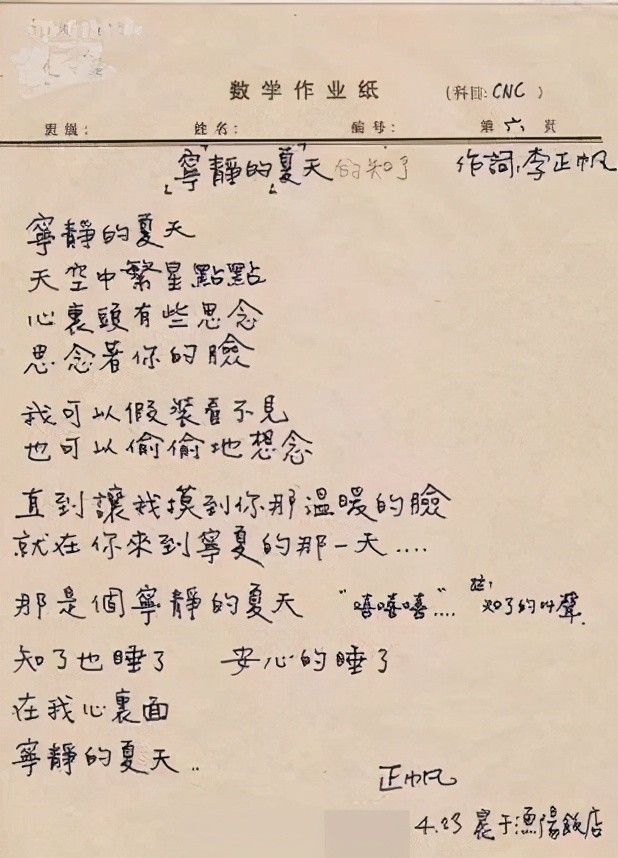 数学作业纸 (科目: CNC )
班级: 姓名: 编号: 第六页
「寧靜的「夏天的知了 作詞:李正帆
寧靜的夏天
天空中繁星點點
心裏頭有些思念
思念著你的臉
我可以假裝看不見
也可以偷偷地想念
直到讓我摸到你那溫暖的臉
就在你來到寧夏的那一天....
那是個寧靜的夏天 "嘻嘻嘻".... 註:知了的叫聲.
知了也睡了 安心的睡了
在我心裏面
寧靜的夏天..
正帆
4.23 晨于漁陽飯店